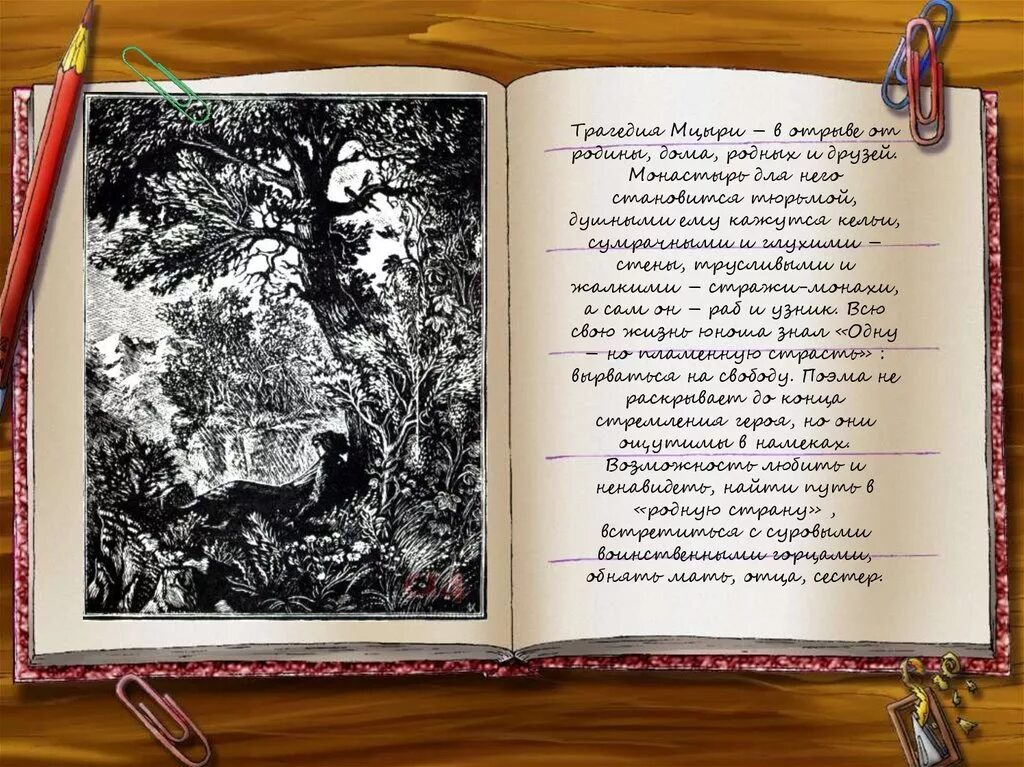 Трагедия Мцыри – в отрыве от
родины, дома, родных и друзей.
Монастырь для него
становится тюрьмой,
душными ему кажутся кельи,
сумрачными и глухими –
стены, трусливыми и
жалкими – стражи-монахи,
а сам он – раб и узник. Всю
свою жизнь юноша знал «Одну
– но пламенную страсть» :
вырваться на свободу. Поэма не
раскрывает до конца
стремления героя, но они
ощутимы в намеках.
Возможность любить и
ненавидеть, найти путь в
«родную страну» ,
встретиться с суровыми
воинственными горцами,
обнять мать, отца, сестер.